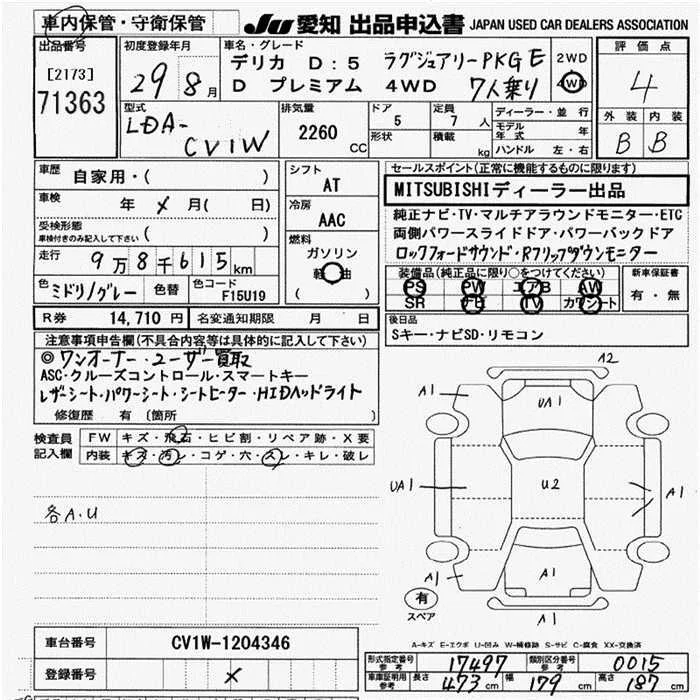 車内保管・守衛保管
JU 愛知 出品申込書 JAPAN USED CAR DEALERS ASSOCIATION
出品番号
[2173]
71363
初度登録年月
29 8月
車名・グレード
デリカ D:5 ラグジュアリーPKG E
D プレミアム 4WD 7人乗り
2WD
4WD
評価点
4
外装 内装
B B
型式
LDA-
CV1W
排気量
2260
CC
ドア
5
形状
定員
7 人
積載
kg
ディーラー・並行
モデル年式 年
ハンドル 左・右
車歴
自家用・( )
車検
年 メ 月( 日)
受検形態
車検付きのみ記入して下さい ( )
走行
9万8千615km
色
ミドリ/グレー
色替
色コード
F15U19
シフト
AT
冷房
AAC
燃料
ガソリン
軽油
( )
セールスポイント(正常に機能するものに限ります)
MITSUBISHIディーラー出品
純正ナビ・TV・マルチアラウンドモニター・ETC
両側パワースライドドア・パワーバックドア
ロックフォードサウンド・Rフリップダウンモニター
装備品(純正品に限り○をつけてください)
PS PW エアB AW
SR ナビ TV カワシート
新車保証書
有・無
R券 14,710 円 名変通知期限 月 日
後日品
Sキー・ナビSD・リモコン
注意事項申告欄(不具合内容等は具体的に記入して下さい)
◎ワンオーナー・ユーザー買取
ASC・クルーズコントロール・スマートキー
レザーシート・パワーシート・シートヒーター・HIDヘッドライト
修復歴 有 (箇所 )
検査員記入欄
FW キズ・飛石・ヒビ割・リペア跡・X要
内装 キズ・汚レ・コゲ・穴・スレ・キレ・破レ
各A.U
A2
A1
UA1
UA1
U2
A1
A1
A1
A1
有
スペア
A-キズ E-エクボ U-凹み W-補修跡 S-サビ C-腐食 XX-交換済
車台番号 CV1W-1204346
登録番号 メ
形式指定番号参考 17497 類別区分番号参考 0015
車庫証明用参考 長さ 473 cm 幅 179 cm 高さ 187 cm